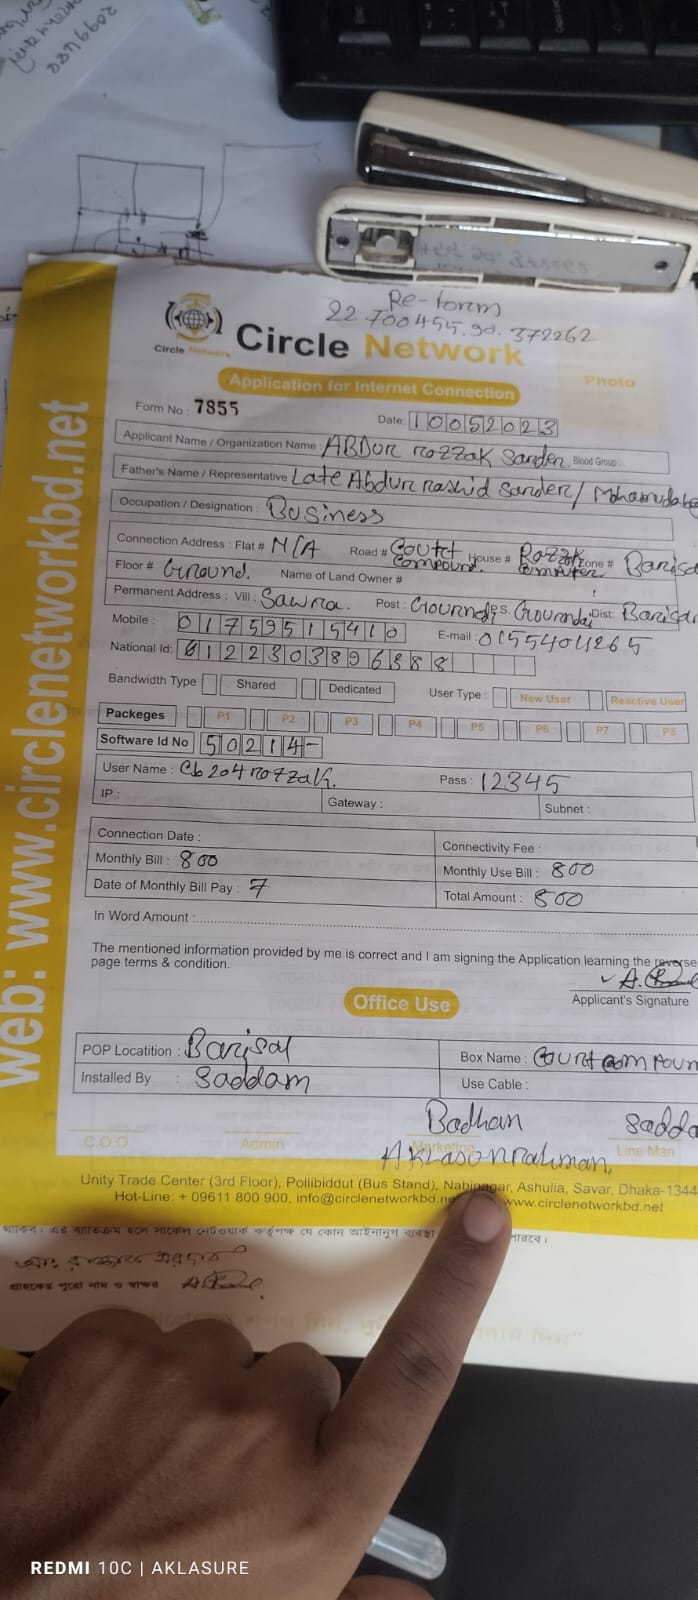 Re-form
22.700455.90.372262
Circle Network
Circle Network
Application for Internet Connection
Photo
Form No : 7855
Date: 10052023
Applicant Name / Organization Name : ABDUR rozzak Sarder. Blood Group :
Father's Name / Representative Late Abdur rashid Sarder/
Occupation / Designation : Business
Connection Address : Flat # N/A Road # Court Compound. House # Rozzak Computer. Zone # Barisa
Floor # Ground. Name of Land Owner #
Permanent Address : Vill : Sawra. Post : Dist: Barisa
Mobile : 01759515410 E-mail : 01554041265
National Id:
Bandwidth Type Shared Dedicated User Type : New User Reactive User
Packeges P1 P2 P3 P4 P5 P6 P7 P8
Software Id No 50214-
User Name : cb204rozzak. Pass : 12345
IP : Gateway : Subnet :
Connection Date : Connectivity Fee :
Monthly Bill : 800 Monthly Use Bill : 800
Date of Monthly Bill Pay : 7 Total Amount : 800
In Word Amount :
The mentioned information provided by me is correct and I am signing the Application learning the reverse
page terms & condition.
Applicant's Signature
Office Use
POP Locatition : Barisal Box Name : Court compoun
Installed By : Saddam Use Cable :
Badhan Sadda
C O O Admin Marketing Line Man
Unity Trade Center (3rd Floor), Pollibiddut (Bus Stand), Nabinagar, Ashulia, Savar, Dhaka-1344
Hot-Line: + 09611 800 900, info@circlenetworkbd.ne www.circlenetworkbd.net
web: www.circlenetworkbd.net
গ্রাহকের পুরো নাম ও স্বাক্ষর
REDMI 10C | AKLASURE